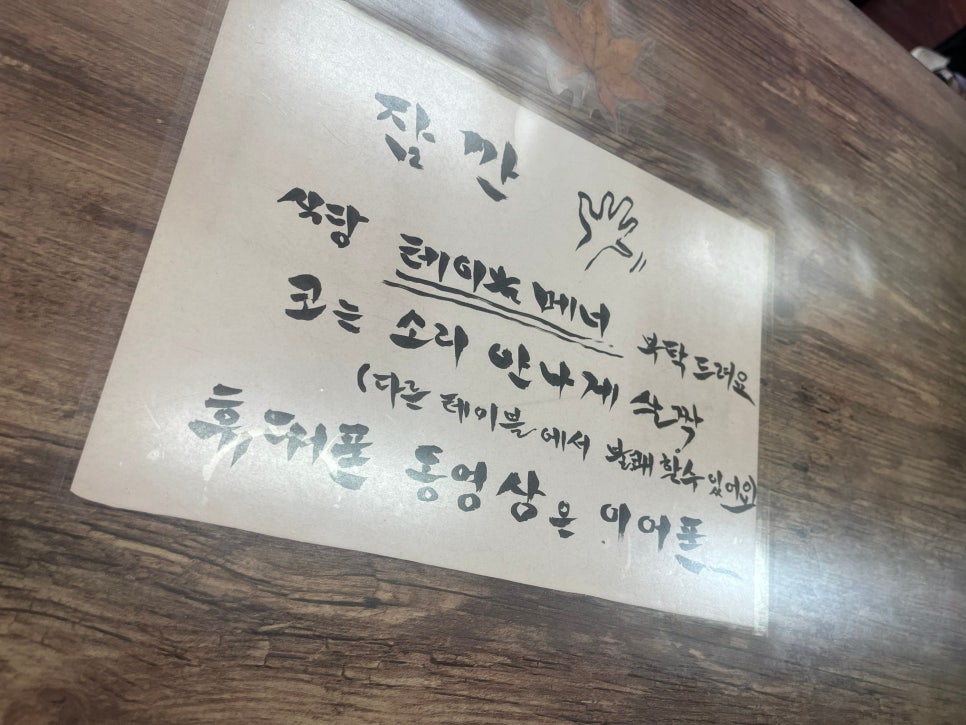 잠깐
식탁 테이블 메너 부탁드려요
코는 소리 안나게 살짝
(다른 테이블에서 불쾌할수있어요)
휴대폰 동영상은 이어폰